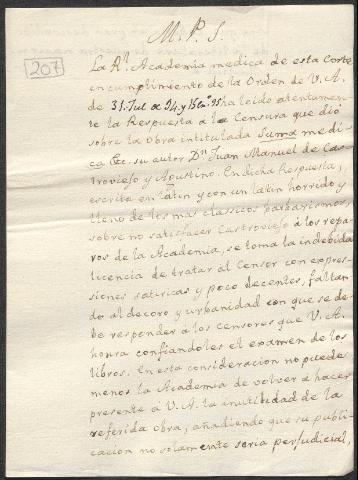 M. P. S.
207
La Rl. Academia medica de esta Corte
en cumplimiento de la Orden de V. A.
de 31. Jul. de 94. y 1 95 ha leido atentamen-
te la Respuesta a la Censura que dió
sobre la Obra intitulada Suma medi-
ca &c. su autor Dn. Juan Manuel de Cas-
troviejo y Agustino. En dicha Respuesta,
escrita en Latin y con un latin horrido y
lleno de los mas classicos barbarismos,
sobre no satisfacer Castroviejo à los repa-
ros de la Academia, se toma la indebida
licencia de tratar al Censor con expres-
siones satiricas y poco decentes, faltan-
do al decoro y urbanidad con que se de-
be responder à los censores que V. A.
honra confiandoles el examen de los
libros. En esta consideracion no puede
menos la Academia de volver a hacer
presente à V. A. la inutilidad de la
referida obra, añadiendo que su publi-
cacion no solamente seria perjudicial,